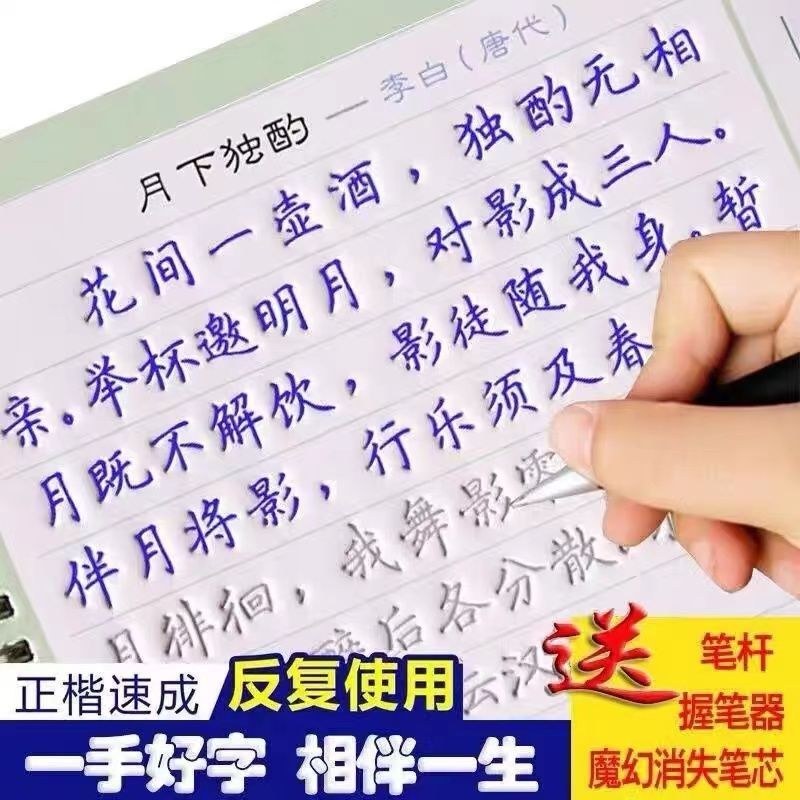 月下独酌 — 李白(唐代)
花间一壶酒，独酌无相
亲。举杯邀明月，对影成三人。
月既不解饮，影徒随我身。暂
伴月将影，行乐须及春
我舞影零
月徘徊，
醉后各分散
云汉
正楷速成
反复使用
一手好字 相伴一生
送
笔杆
握笔器
魔幻消失笔芯